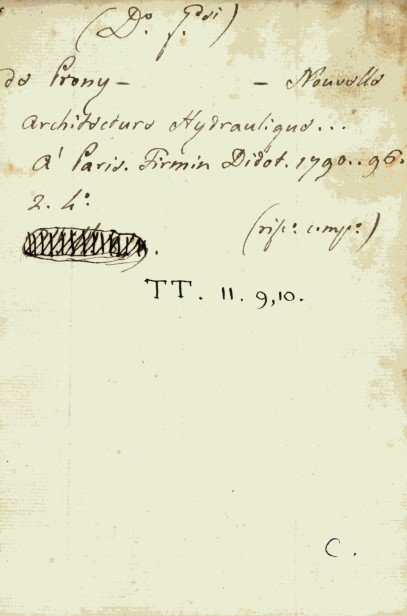 (Do. f. Gdi)
de Prony — — Nouvelle
Architecture Hydraulique...
A' Paris. Firmin Didot. 1790..96.
2. 4o.
(risc. comp.)
TT. 11. 9,10.
C.